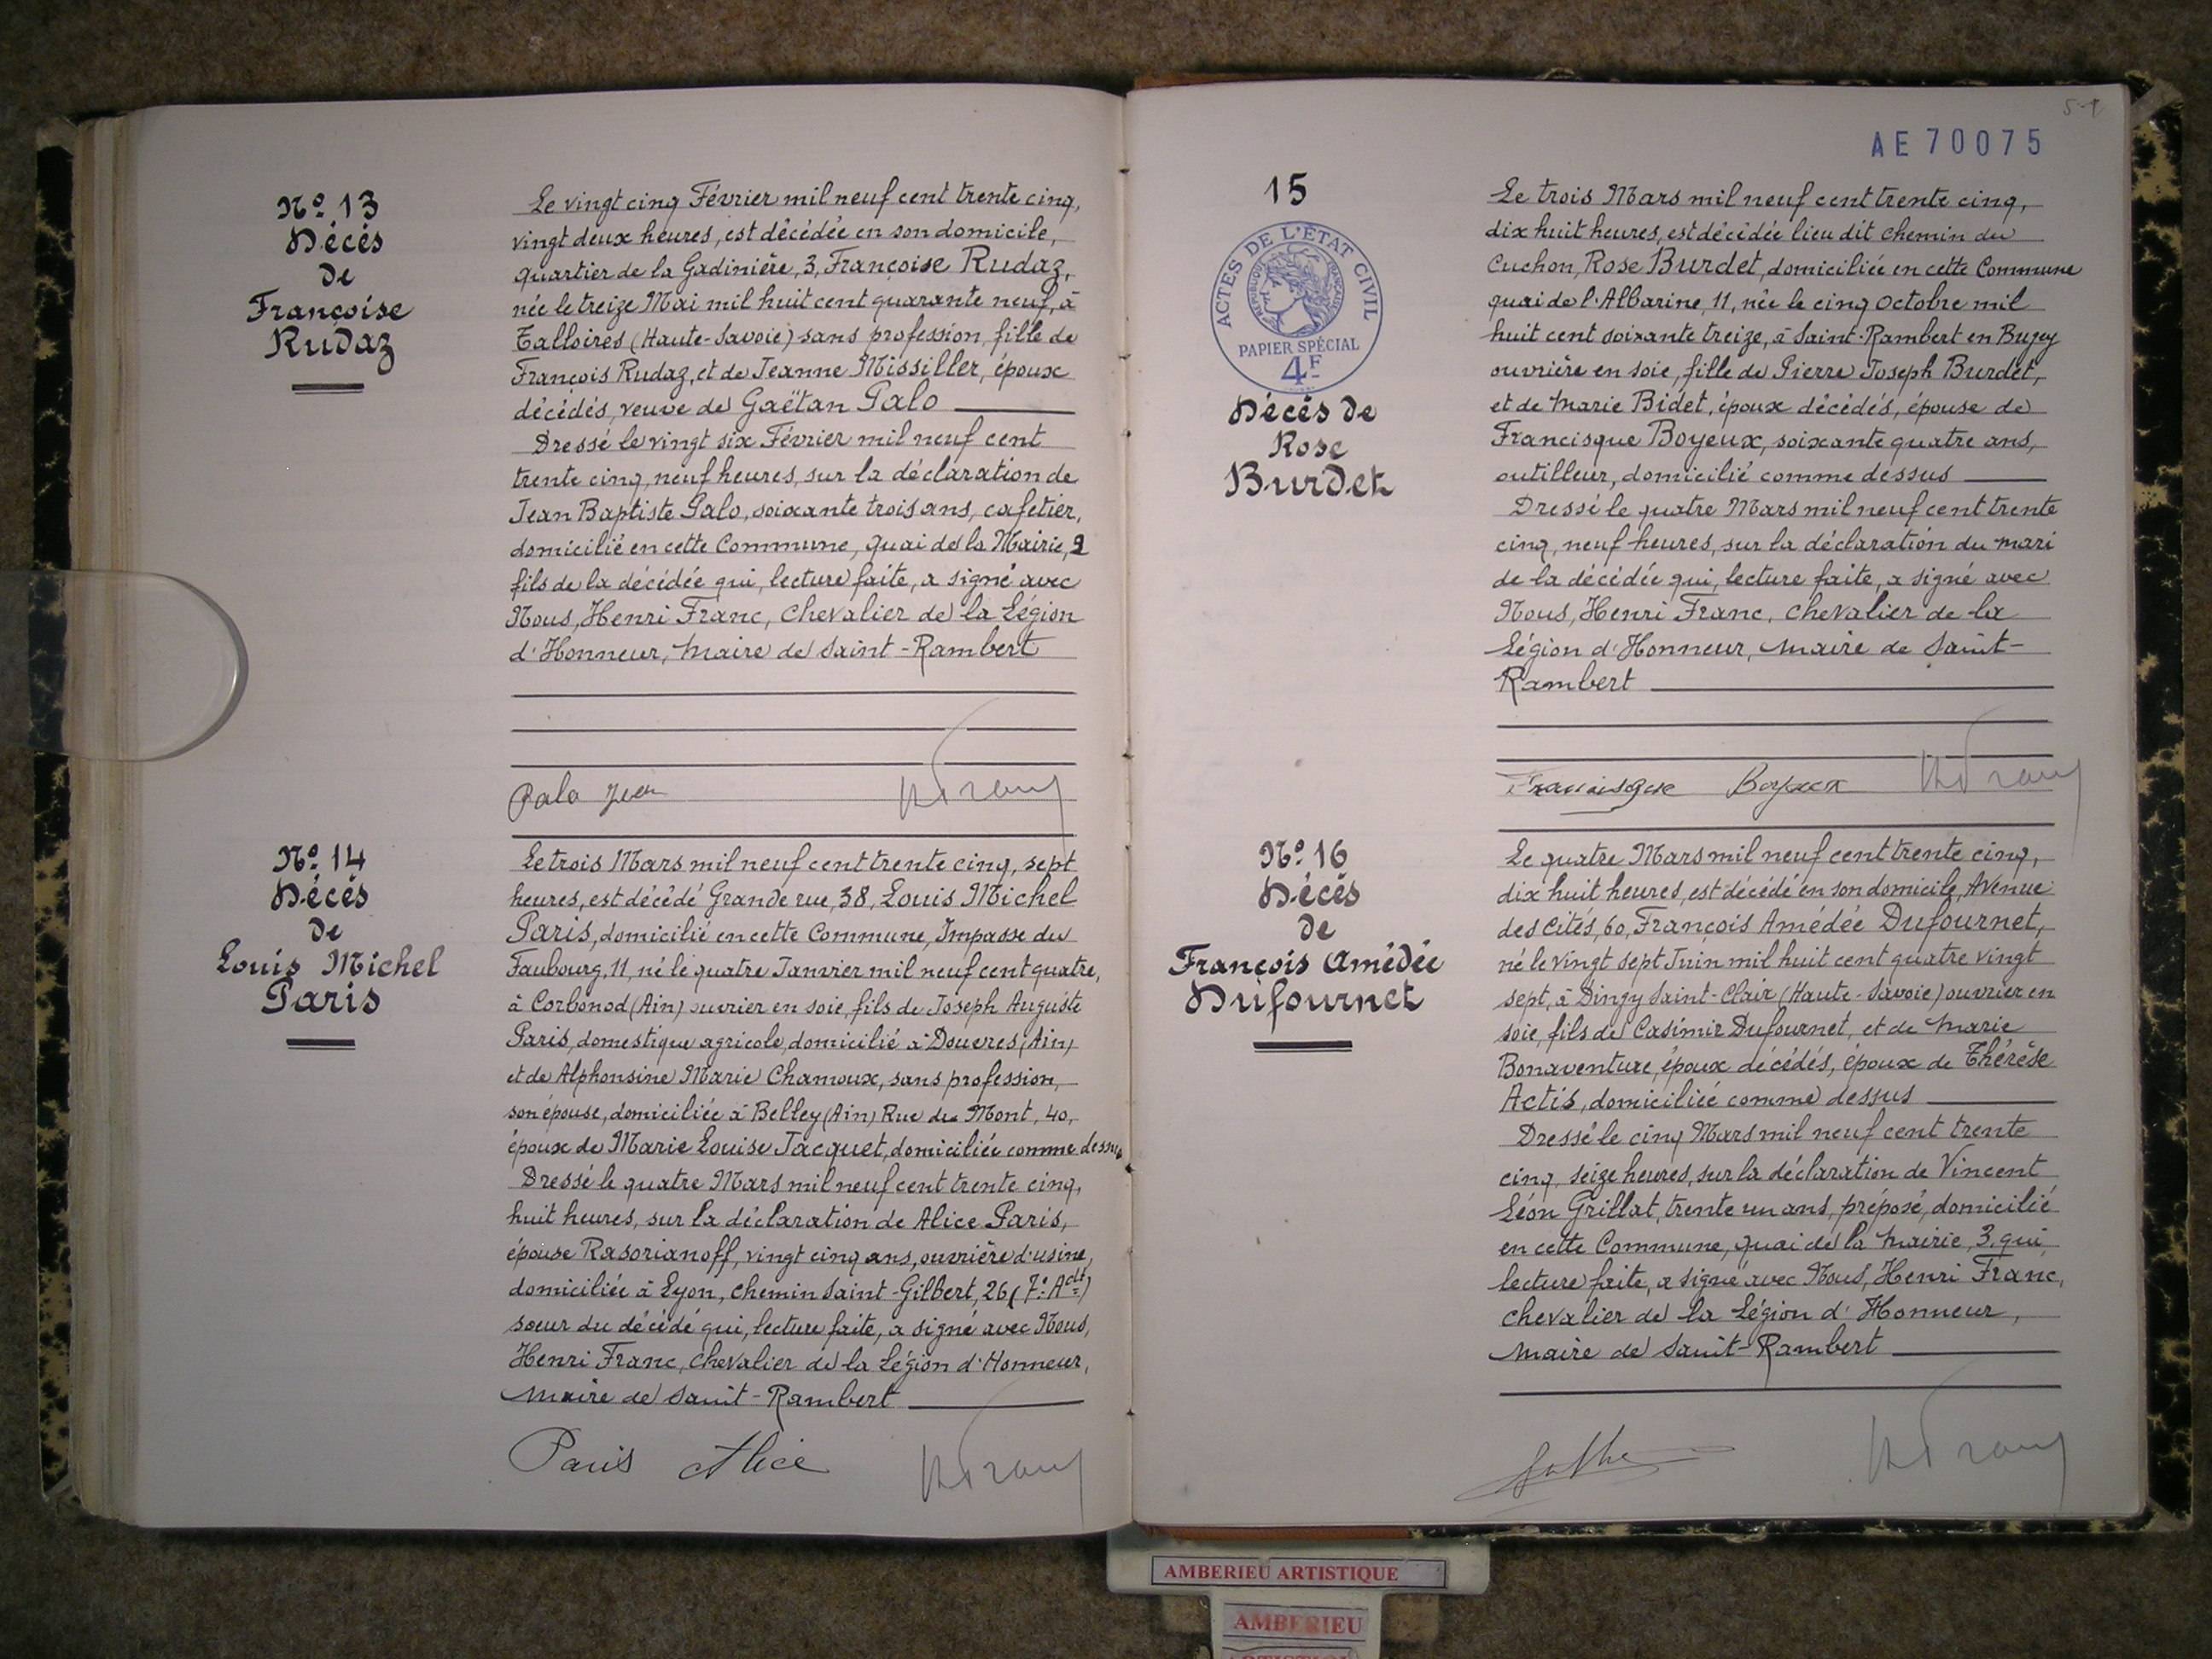 Nº 13
Décés
de
Françoise
Rudaz
Le vingt cinq Février mil neuf cent trente cinq,
vingt deux heures, est décédée en son domicile,
quartier de la Gadinière, 3, Françoise Rudaz,
née le treize Mai mil huit cent quarante neuf, à
Talloires (Haute-Savoie) sans profession, fille de
François Rudaz, et de Jeanne Missiller, époux
décédés, veuve de Gaëtan Palo
Dressé le vingt six Février mil neuf cent
trente cinq, neuf heures, sur la déclaration de
Jean Baptiste Palo, soixante trois ans, cafetier,
domicilié en cette Commune, quai de la Mairie, 2
fils de la décédée qui, lecture faite, a signé avec
Nous, Henri Franc, Chevalier de la Légion
d'Honneur, Maire de Saint-Rambert
Palo Jean
Nº 14
Décés
de
Louis Michel
Paris
Le trois Mars mil neuf cent trente cinq, sept
heures, est décédé Grande rue, 38, Louis Michel
Paris, domicilié en cette Commune, Impasse du
Faubourg, 11, né le quatre Janvier mil neuf cent quatre,
à Corbonod (Ain) ouvrier en soie, fils de Joseph Auguste
Paris, domestique agricole, domicilié à Douvres (Ain)
et de Alphonsine Marie Chamoux, sans profession,
son épouse, domiciliée à Belley (Ain) Rue du Mont, 40,
époux de Marie Louise Jacquet, domiciliée comme dessus
Dressé le quatre Mars mil neuf cent trente cinq,
huit heures, sur la déclaration de Alice Paris,
épouse Rasorianoff, vingt cinq ans, ouvrière d'usine,
domiciliée à Lyon, chemin Saint-Gilbert, 26 (7e Act)
sœur du décédé qui, lecture faite, a signé avec Nous,
Henri Franc, Chevalier de la Légion d'Honneur,
Maire de Saint-Rambert
Paris Alice
AE 70075
15
ACTES DE L'ÉTAT CIVIL
RÉPUBLIQUE FRANÇAISE
PAPIER SPÉCIAL
4F
Décés de
Rose
Burdet
Le trois Mars mil neuf cent trente cinq,
dix huit heures, est décédée lieu dit Chemin du
Cuchon, Rose Burdet, domiciliée en cette Commune
quai de l'Albarine, 11, née le cinq Octobre mil
huit cent soixante treize, à Saint-Rambert en Bugey
ouvrière en soie, fille de Pierre Joseph Burdet,
et de Marie Bidet, époux décédés, épouse de
Francisque Boyeux, soixante quatre ans,
outilleur, domicilié comme dessus
Dressé le quatre Mars mil neuf cent trente
cinq, neuf heures, sur la déclaration du mari
de la décédée qui, lecture faite, a signé avec
Nous, Henri Franc, Chevalier de la
Légion d'Honneur, Maire de Saint-
Rambert
Francisque Boyeux
Nº 16
Décés
de
François Amédée
Dufournet
Le quatre Mars mil neuf cent trente cinq,
dix huit heures, est décédé en son domicile, Avenue
des Cités, 60, François Amédée Dufournet,
né le vingt sept Juin mil huit cent quatre vingt
sept, à Dingy Saint-Clair (Haute-Savoie) ouvrier en
soie, fils de Casimir Dufournet, et de Marie
Bonaventure, époux décédés, époux de Thérèse
Actis, domiciliée comme dessus
Dressé le cinq Mars mil neuf cent trente
cinq, seize heures, sur la déclaration de Vincent
Léon Grillat, trente un ans, préposé, domicilié
en cette Commune, quai de la Mairie, 3, qui
lecture faite, a signé avec Nous, Henri Franc,
Chevalier de la Légion d'Honneur,
Maire de Saint-Rambert
AMBERIEU ARTISTIQUE
AMBERIEU
ARTISTIQUE